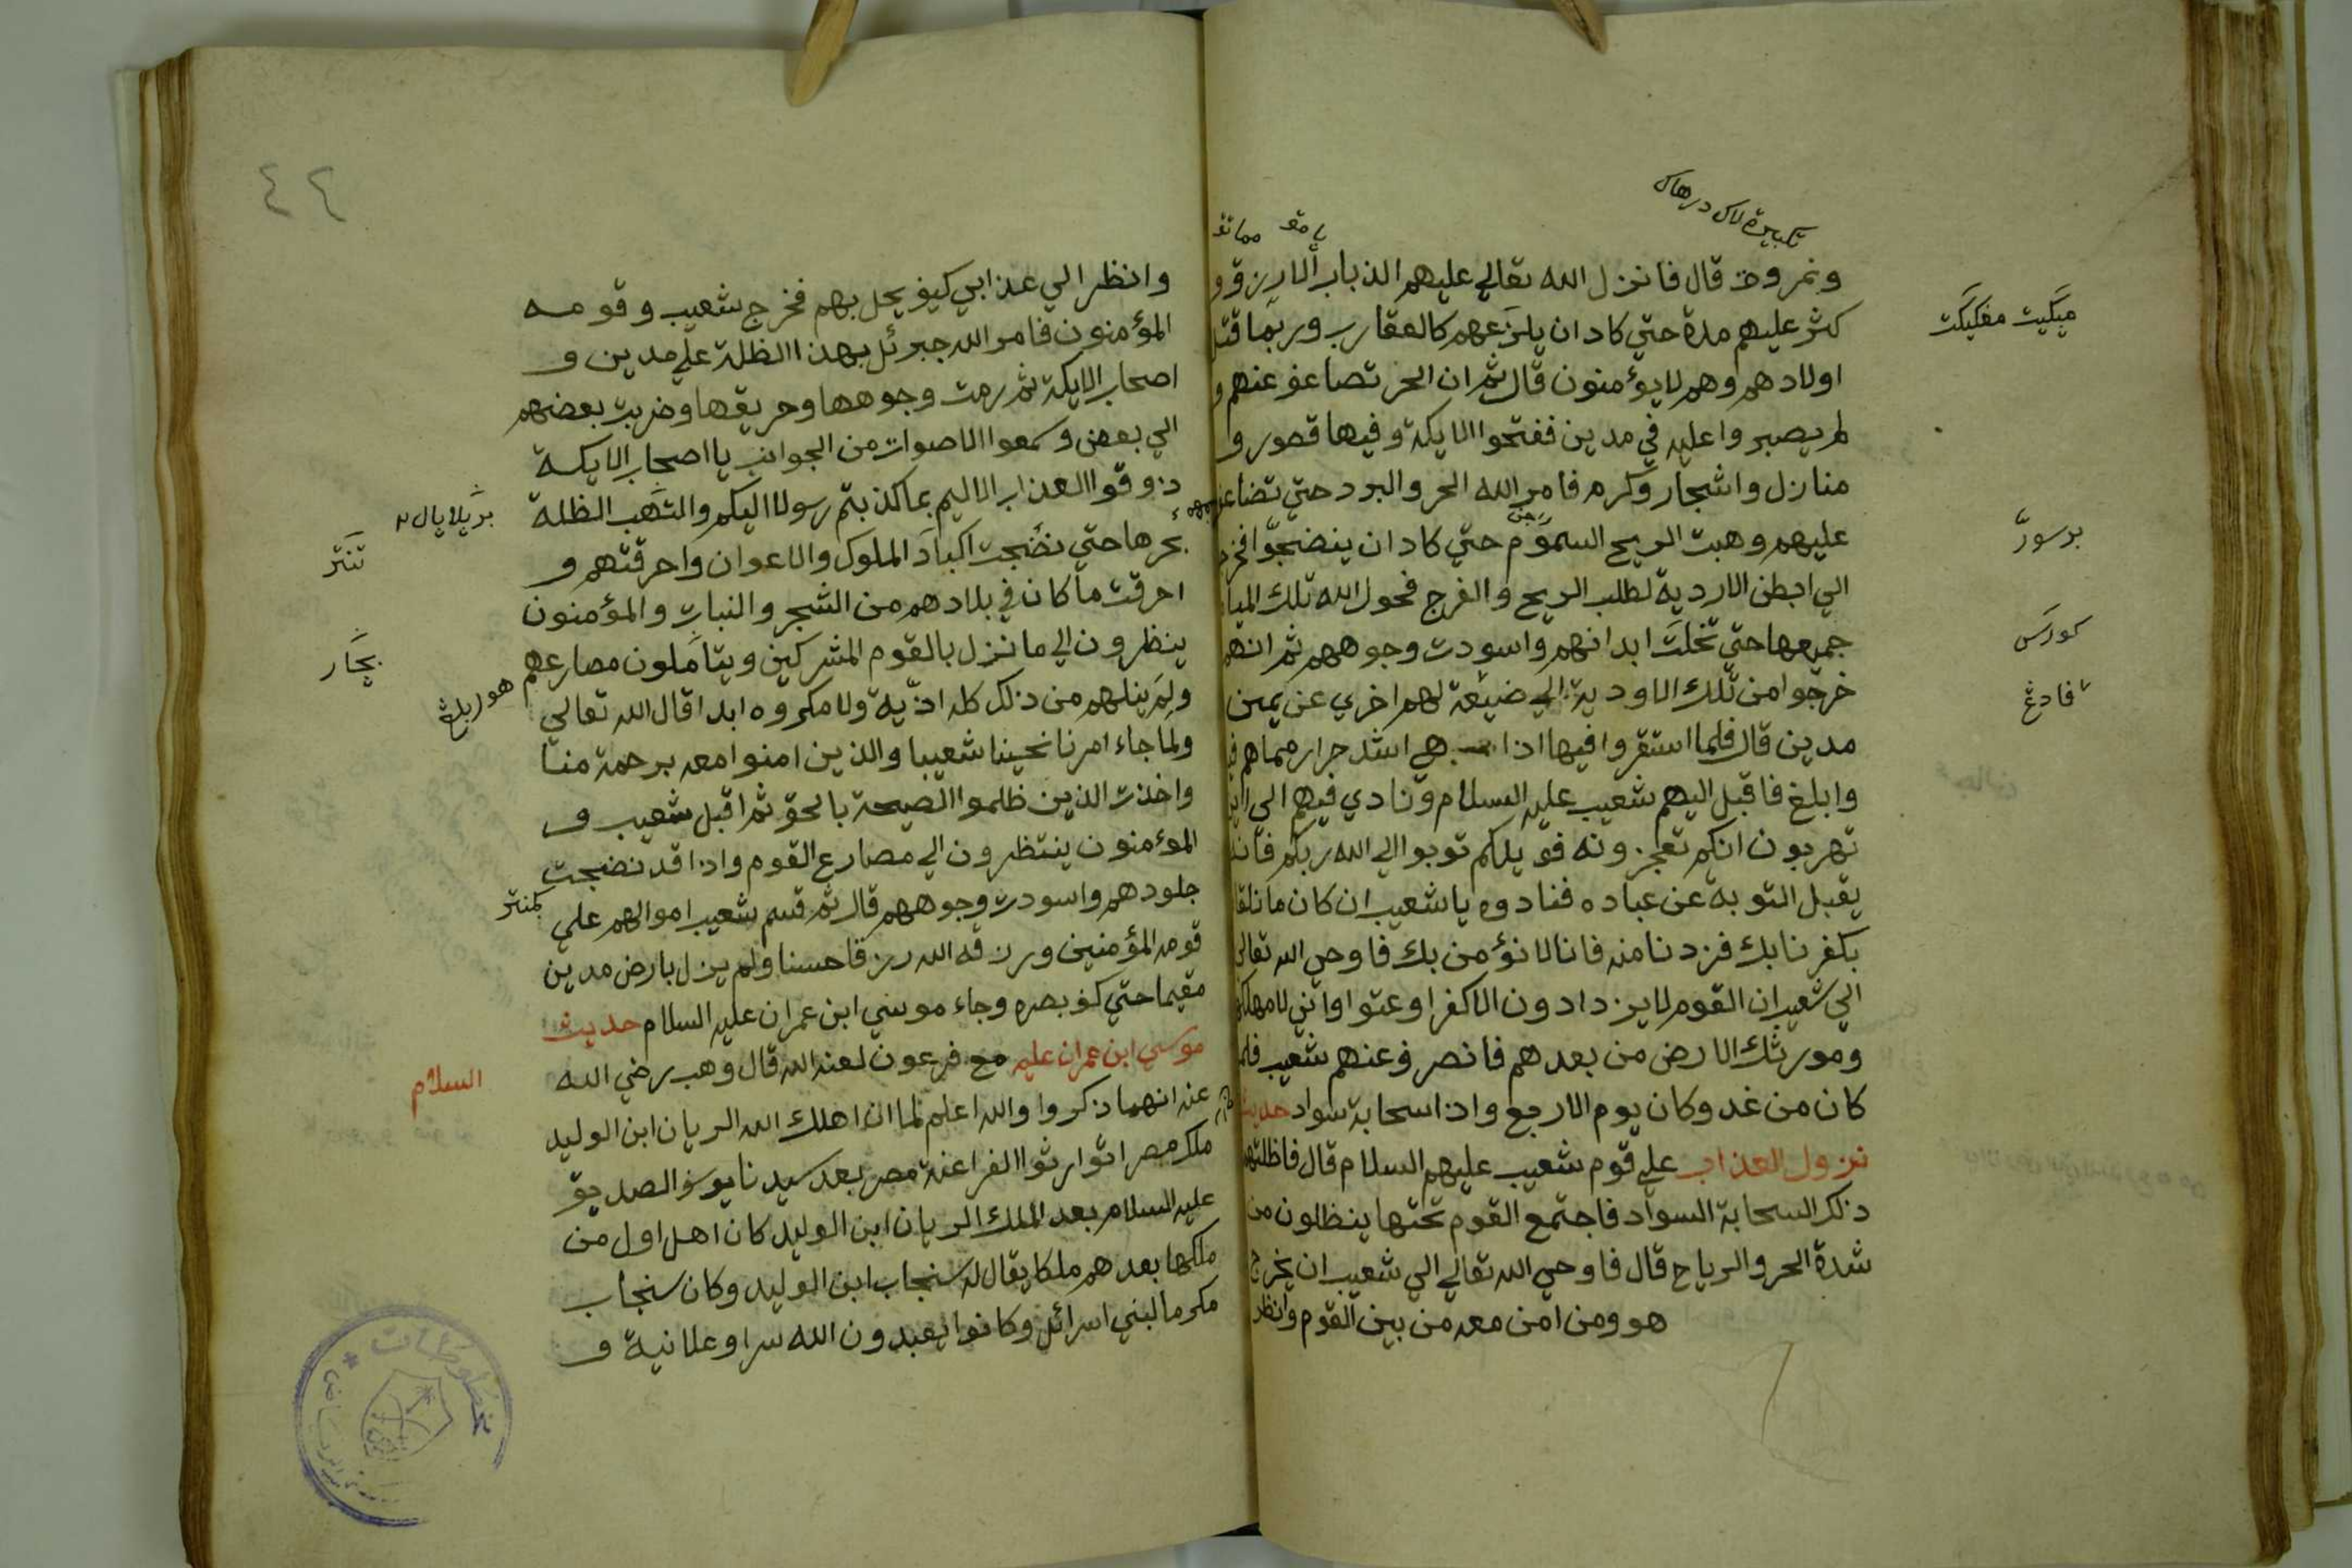 ونمرود قال فانزل الله تعالي عليهم الذباب الارزق و
كثر عليهم مدة حتي كاد ان يلزعهم كالعقارب وربما قتل
اولادهم وهم لا يؤمنون قال ثم ان الحر تصاعف عنهم و
لم يصبروا عليه في مدين ففتحوا الايكة وفيها قصور و
منازل واشجار وكرم فامر الله الحر والبرد حتي تضاعف
عليهم وهبت الريح السموم حتي كاد ان ينضجوا
الي ابطن الاردية لطلب الريح والفرج فحول الله تلك المياه
جميعها حتي تخلت ابدانهم واسودت وجوههم ثم انهم
خرجوا من تلك الاودية الي ضيعة لهم اخري عن يمين
مدين قال فلما استقروا فيها اذا هي اشد حرارة مماهم
وابلغ فاقبل اليهم شعيب عليه السلام ونادي فيهم الي اين
تهربون انكم تعجزونه فويلكم توبوا الي الله ربكم فانه
يقبل التوبة عن عباده فنادوه يا شعيب ان كان ما نلقا
بكفرنا بك فزدنا منه فانا لا نؤمن بك فاوحي الله تعالي
الي شعيب ان القوم لا يزدادون الا كفرا وعتوا واني لا مهلكهم
ومورثك الارض من بعدهم فانصرف عنهم شعيب فلما
كان من غد وكان يوم الاربع واذا سحابة سواد حديث
نزول العذاب علي قوم شعيب عليهم السلام قال فاظلتهم
ذلك السحابة السواد فاجتمع القوم تحتها ينظلون من
شدة الحر والرياح قال فاوحي الله تعالي الي شعيب ان يخرج
هو ومن امن معه من بين القوم وانظر
برسور
٤٢
وانظر الي عذابي كيف يحل بهم فخرج شعيب وقومه
المؤمنون فامر الله جبرئل بهذا الظلة علي مدين و
اصحاب الايكة ثم رمت وجوهها وحريقها وضربت بعضهم
الي بعض وسمعوا الاصوات من الجوانب يا اصحاب الايكة
ذوقوا العذاب الاليم بما كذبتم رسولا اليكم والتهب الظلة
بحرها حتي نضجت اكباد الملوك والاعوان واحرقتهم و
احرقت ما كان في بلادهم من الشجر والنبات والمؤمنون
ينظرون الي ما نزل بالقوم المشركين ويتاملون مصارعهم
ولم ينلهم من ذلك كله اذية ولا مكروه ابدا قال الله تعالي
ولما جاء امرنا نجينا شعيبا والذين امنوا معه برحمة منا
واخذت الذين ظلموا الصيحة بالحق ثم اقبل شعيب و
المؤمنون ينتظرون الي مصارع القوم واذا قد نضجت
جلودهم واسودت وجوههم قال ثم قسم شعيب اموالهم علي
قومه المؤمنين ورزقه الله رزقا حسنا ولم يزل بارض مدين
مقيما حتي كف بصره وجاء موسي ابن عمران عليه السلام حديث
موسي ابن عمران عليه السلام مع فرعون لعنه الله قال وهب رضي الله
عنه انهما ذكروا والله اعلم لما ان اهلك الله الريان ابن الوليد
ملك مصر اتوارثوا الفراعنة مصر بعد سيدنا يوسف الصديق
عليه السلام بعد الملك الريان ابن الوليد كان اهل اول من
ملكها بعدهم ملكا يقال له سنجاب ابن الوليد وكان سنجاب
مكرما لبني اسرائل وكانوا يعبدون الله سرا وعلانية و
مخطوطات